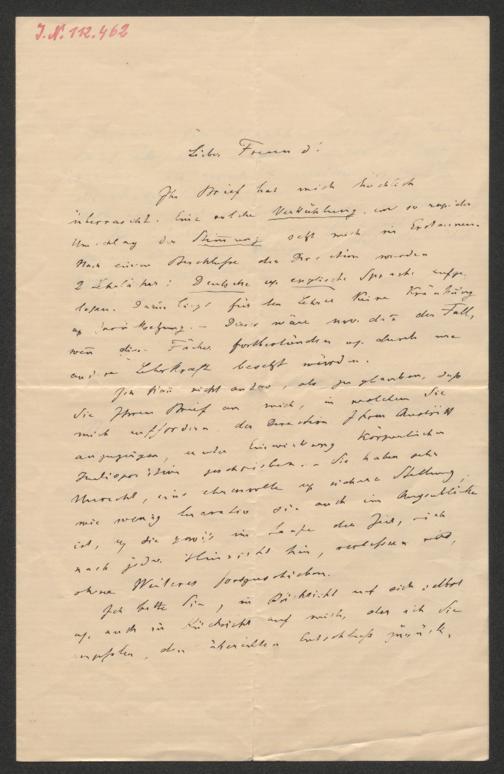 J.N. 112.462
Lieber Freund!
Ihr Brief hat mich höchlich
überrascht. Eine solche Verkühlung, ein so rapider
Umschlag der Stimmung setzt mich in Erstaunen.
Nach einem Beschlusse der Direction wurden
2 Lehrfächer: Deutsche u. englische Sprache aufge-
lassen. Darin liegt für den Lehrer keine Kränkung
u.
Dies wäre nur dann der Fall,
wenn diese Fächer fortbestünden u. durch eine
andere Lehrkraft besetzt würden.
Ich kann nicht anders, als zu glauben, daß
Sie Ihren Brief an mich, in welchem Sie
mich auffordern, der Direction Ihren Austritt
anzuzeigen, unter Einwirkung körperlicher
Indisposition geschrieben. Sie haben sehr
Unrecht, eine ehrenvolle u. sichere Stellung,
wie wenig lucrativ sie auch im Augenblicke
ist, u. die gewiß im Laufe der Zeit, sich
nach jeder Hinsicht hin, verbessern wird,
ohne Weiteres
Ich bitte Sie, in Rücksicht auf sich selbst
u. auch in Rücksicht auf mich, der ich Sie
empfolen, den übereilten Entschluß zurück-